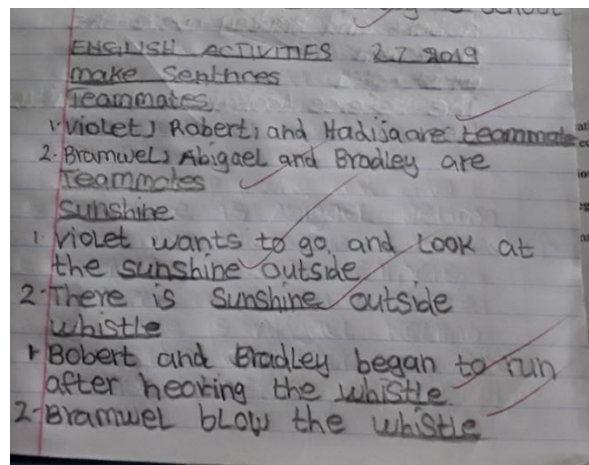 ENGLISH ACTIVITIES 2.7.2019
make Senthces
Teammates
1. Violet, Robert, and Hadija are teammate
2. Bramwel, Abigael and Bradley are
Teammates
Sunshine
1. Violet wants to go, and Look at
the sunshine outside
2. There is Sunshine outside
whistle
1. Bobert and Bradley began to run
after hearing the whistle.
2. Bramwel blow the whistle